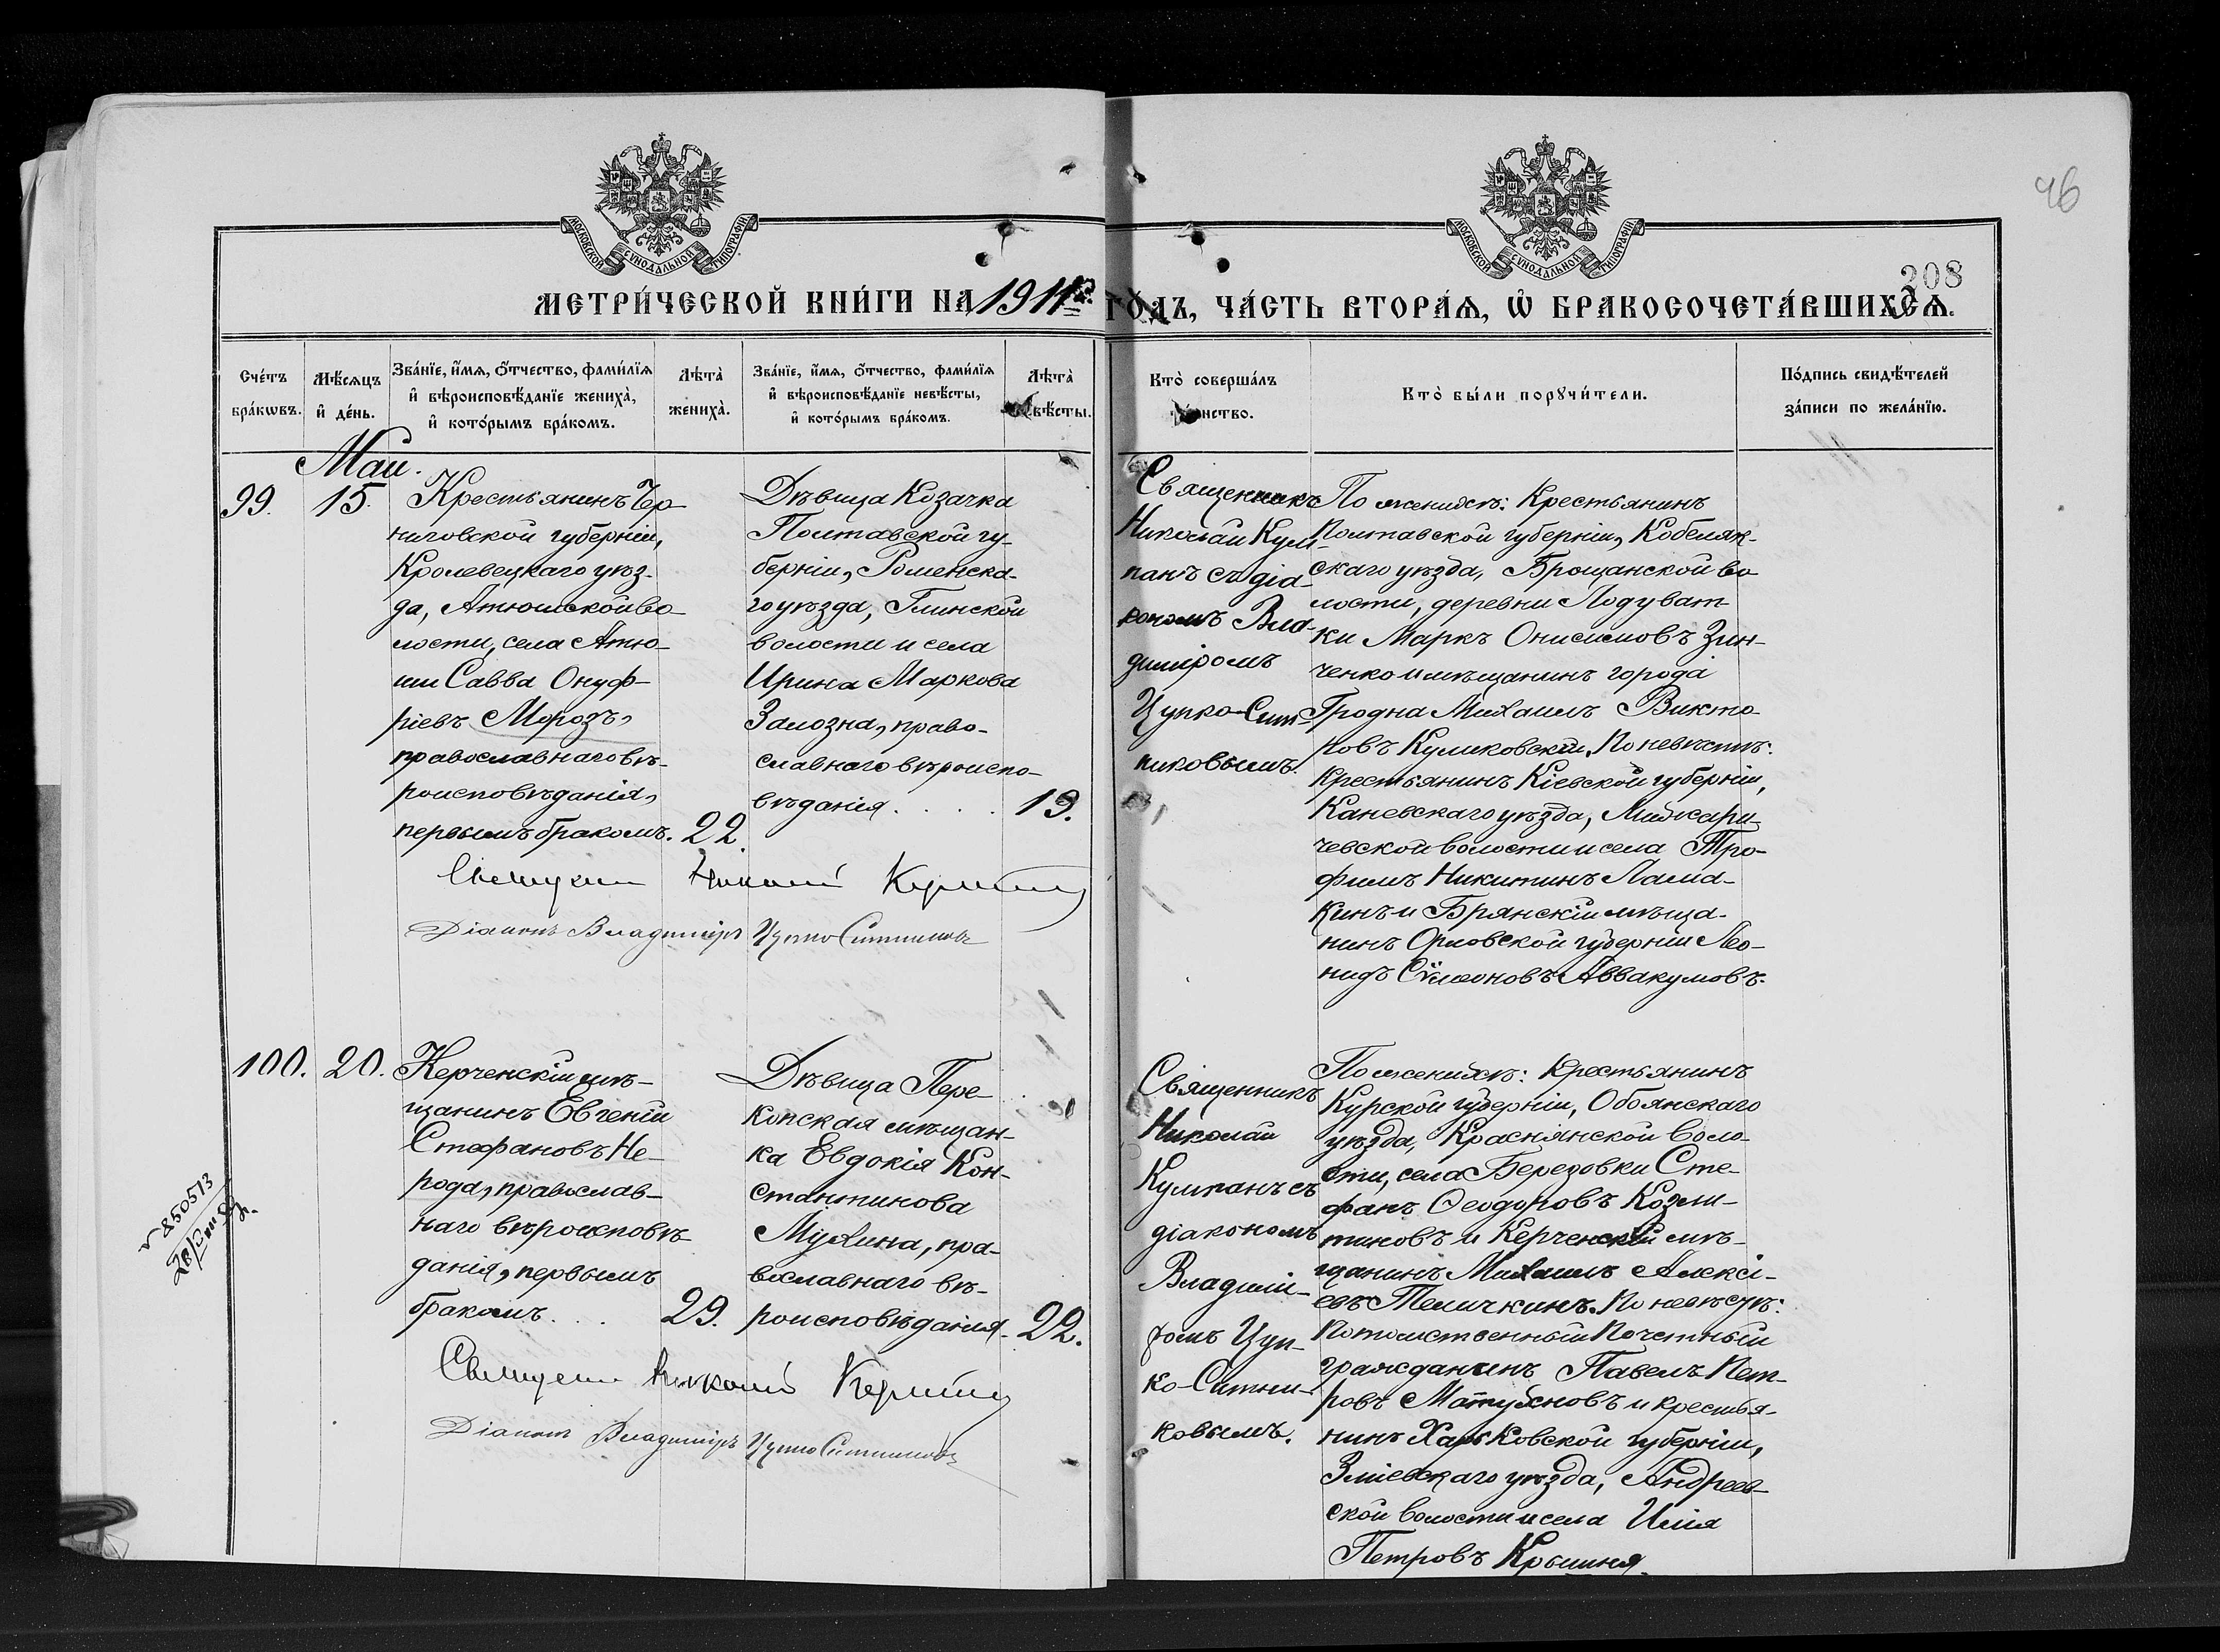 96
208
МОСКОВСКОЙ СѴНОДАЛЬНОЙ ТИПОГРАФІИ
МЕТРИ́ЧЕСКОЙ КНИ́ГИ НА 1911
МОСКОВСКОЙ СѴНОДАЛЬНОЙ ТИПОГРАФІИ
ГО́ДЪ, ЧА́СТЬ ВТОРА́Ѧ, Ѽ БРАКОСОЧЕТА́ВШИХСѦ.
Сче́тъ
бра́кѡвъ.
Мѣ́сѧцъ
и҆ де́нь.
Зва́нїе, и҆́мѧ, ѻ҆́тчество, фами́лїѧ
и҆ вѣроисповѣ́данїе жениха̀,
и҆ кото́рымъ бра́комъ.
Лѣта̀
жениха̀.
Зва́нїе, и҆́мѧ, ѻ҆́тчество, фами́лїѧ
и҆ вѣроисповѣ́данїе невѣ́сты,
и҆ кото́рымъ бра́комъ.
Лѣта̀
вѣ́сты.
Кто̀ соверша́лъ
нство.
Кто̀ бы́ли порꙋчи́тели.
По́дпись свидѣ́телей
за́писи по жела́нїю.
Май.
99.
15.
Крестьянинъ Чер-
ниговской губерніи,
Кролевецкаго уѣз-
да, Атюшской во-
лости, села Атю-
ши Савва Онуф-
ріевъ Морозъ,
православнаго вѣ-
роисповѣданія,
первымъ бракомъ.
22.
Дѣвица Козачка
Полтавской гу-
берніи, Роменска-
го уѣзда, Глинской
волости и села
Ирина Маркова
Залозна, право-
славнаго вѣроиспо-
вѣданія . . . .
19.
Священникъ
Николай Кум-
панъ съ діа-
кономъ Вла-
диміромъ
Цупко-Сит-
никовымъ.
По женихѣ: Крестьянинъ
Полтавской губерніи, Кобеляк-
скаго уѣзда, Брощанской во
лости, деревни Лодуват
ки Маркъ Онисимовъ Зин-
ченко и мѣщанинъ города
Гродна Михаилъ Викто-
ровъ Куликовскій. По невѣстѣ:
Крестьянинъ Кіевской губерніи,
Каневскаго уѣзда,
чевской волости и села Тро-
фимъ Никитинъ Лама-
кинъ и Брянскій мѣща-
нинъ Орловской губерніи Лео-
нидъ Сѵмеоновъ Аввакумовъ.
Священникъ Николай Кумпанъ
Діаконъ Владиміръ Цупко Ситниковъ
100.
20.
Керченскій мѣ-
щанинъ Евгеній
Стефановъ Не-
рода, православ-
наго вѣроисповѣ-
данія, первымъ
бракомъ. . .
29.
Дѣвица Пере-
копская мѣщан-
ка Евдокія Кон-
стантинова
Мухина, пра-
вославнаго вѣ-
роисповѣданія.
22.
Священникъ
Николай
Кумпанъ съ
діакономъ
Владимі-
ромъ Цуп-
ко-Ситни-
ковымъ.
По женихѣ: Крестьянинъ
Курской губерніи, Обоянскаго
уѣзда, Краснянской воло-
сти, села Березовки Сте-
фанъ Ѳеодоровъ Козли-
тиновъ и Керченскій мѣ-
щанинъ Михаилъ Алексі-
евъ Теличкинъ. По невѣстѣ:
Потомственный Почетный
гражданинъ Павелъ Пет-
ровъ и крестья-
нинъ Харьковской губерніи,
Зміевскаго уѣзда, Андреев-
ской волости и села Илія
Петровъ Крышня.
Священникъ Николай Кумпанъ
Діаконъ Владиміръ Цупко Ситниковъ
850513